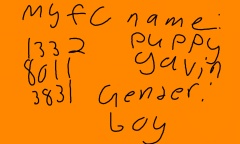 my fc name:
1332 puppy
8011 gavin
3831 Gender:
boy